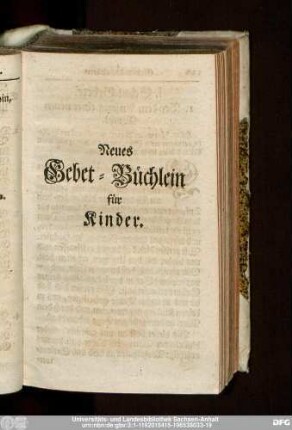 Neues
Gebet-Büchlein
für
Kinder.
Universitäts- und Landesbibliothek Sachsen-Anhalt
urn:nbn:de:gbv:3:1-1192015415-196538633-19
DFG